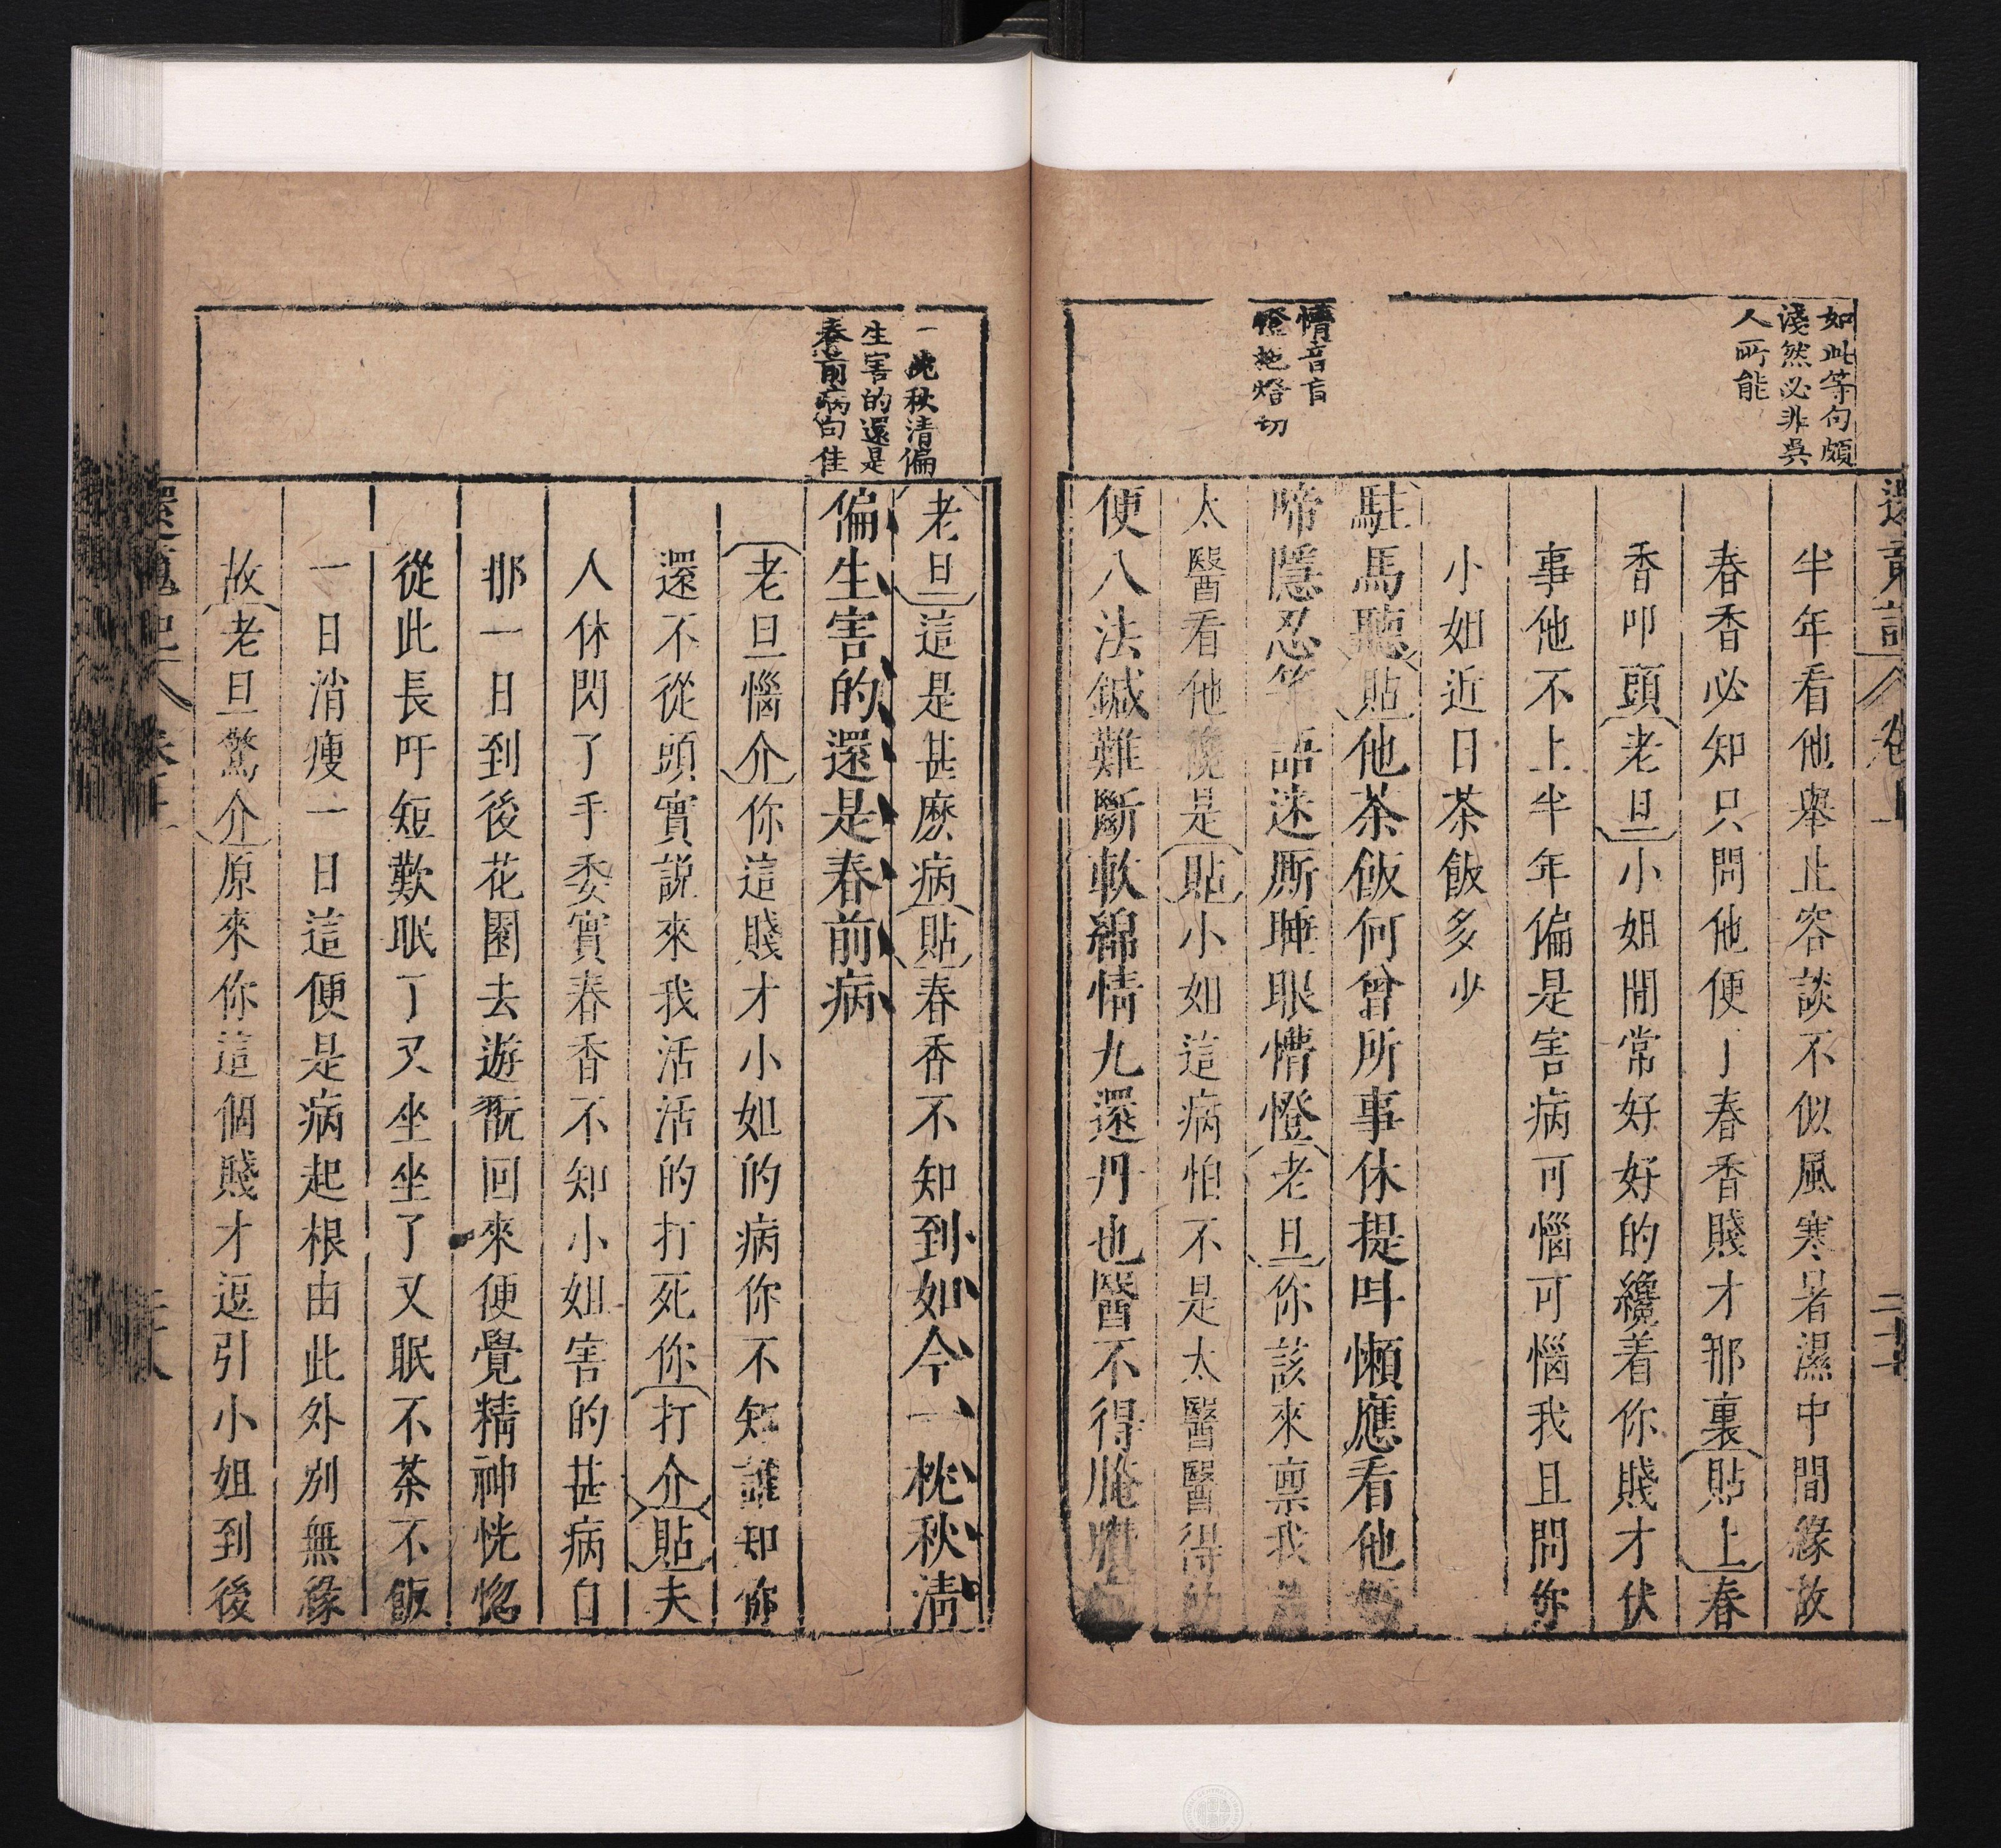 如此等句頗
淺然必非吳
人所能
懵音盲
還魂記
卷上
半年看他舉止容談不似風寒暑濕中間緣故
春香必知只問他便了春香賤才那裏貼上春
香叩頭老旦小姐閒常好好的纔着你賤才伏
事他不上半年偏是害病可惱可惱我且問你
小姐近日茶飯多少
駐馬聽貼他茶飯何曾所事休提叫懶應看他
啼隱忍笑語迷廝睡眼懵憕老旦你該來禀我
太醫看他纔是貼小姐這病怕不是太醫醫得的
便八法鍼難斷軟綿情九還丹也醫不得腌
一枕秋清偏
生害的還是
春前病句佳
老旦這是甚麽病貼春香不知到如今一枕秋清
偏生害的還是春前病
老旦惱介你這賤才小姐的病你不知誰知你
還不從頭實説來我活活的打死你打介貼夫
人休閃了手委實春香不知小姐害的甚病自
那一日到後花園去遊翫回來便覺精神恍惚
從此長吁短歎眠了又坐坐了又眠不茶不飯
一日消瘦一日這便是病起根由此外别無緣
故老旦驚介原來你這個賤才逗引小姐到後